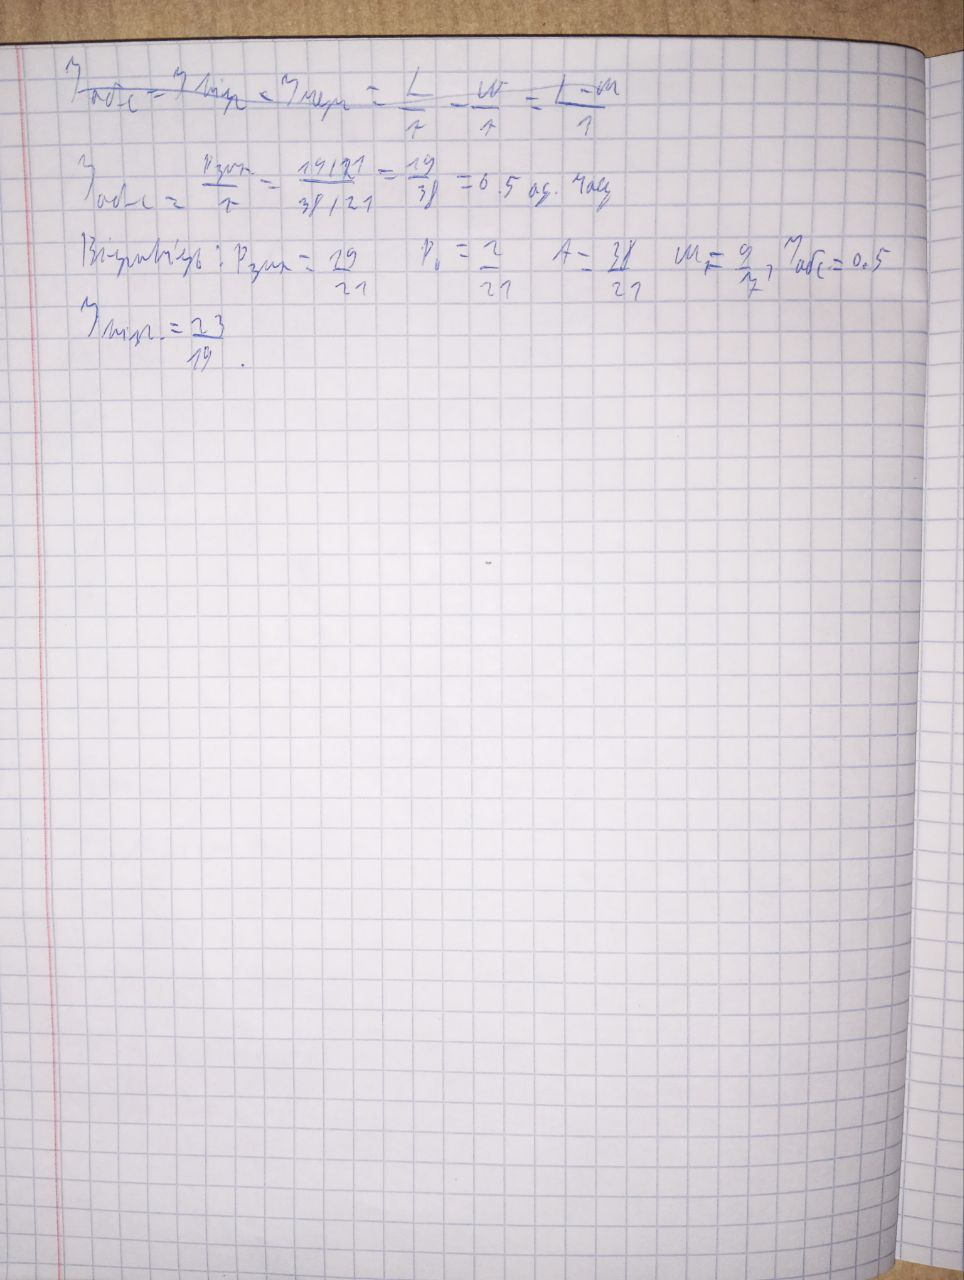 Tобс = Tпер - Tчер = L/λ - M/λ = L-M/λ
Tобс = Pзан./λ = 19/21 / 38/21 = 19/38 = 0.5 од. часу
Відповідь: Pзан = 19/21 P₀ = 2/21 A = 38/21 M₁ = 9/7, Tобс = 0.5
Tпер. = 23/19.